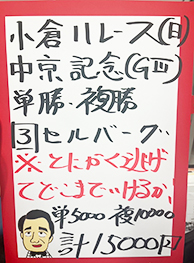 小倉11レース(日)
中京記念(GⅢ)
単勝・複勝
3セルバーグ
※とにかく逃げ
てどこまでいけるか、
単5000 複10000
計15000円